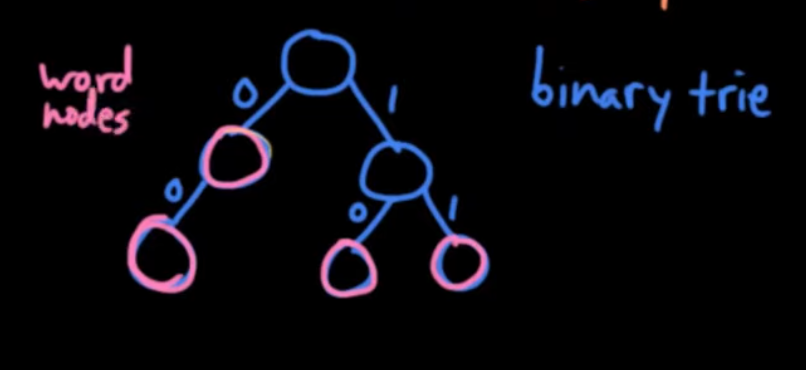 word
nodes
binary trie
0
1
0
0
1